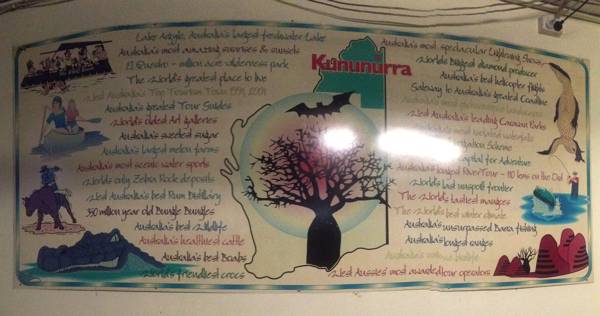 Lake Argyle, Australia's largest freshwater Lake
Australia's most amazing sunrises & sunsets
El Questro - million acre wilderness park
The World's greatest place to live
Australia's Top Tourism Town 1991, 2001
Australia's greatest Tour Guides
World's oldest Art galleries
Australia's seeded sugar
Australia's largest melon farms
Australia's most scenic water sports
Worlds only Zebra Rock deposits
Australia's best Rum Distillery
350 million year old Bungle Bungles
Australia's best Wildlife
Australia's healthiest cattle
Australia's best Boabs
World's friendliest crocs
Kununurra
Australia's most spectacular Lightening Shows
Worlds Biggest diamond producer
Australia's best helicopter flights
Gateway to Australia's greatest Coastline
Australia's leading Caravan Parks
Australia's most isolated waterfalls
Scheme
capital for Adventure
Australia's longest River Tour - 110 kms on the Ord
Worlds last unspoilt frontier
The World's tastiest mangoes
The World's best winter climate
Australia's unsurpassed Barra fishing
Australia's longest ranges
Australia's
Aussies' most awarded tour operators